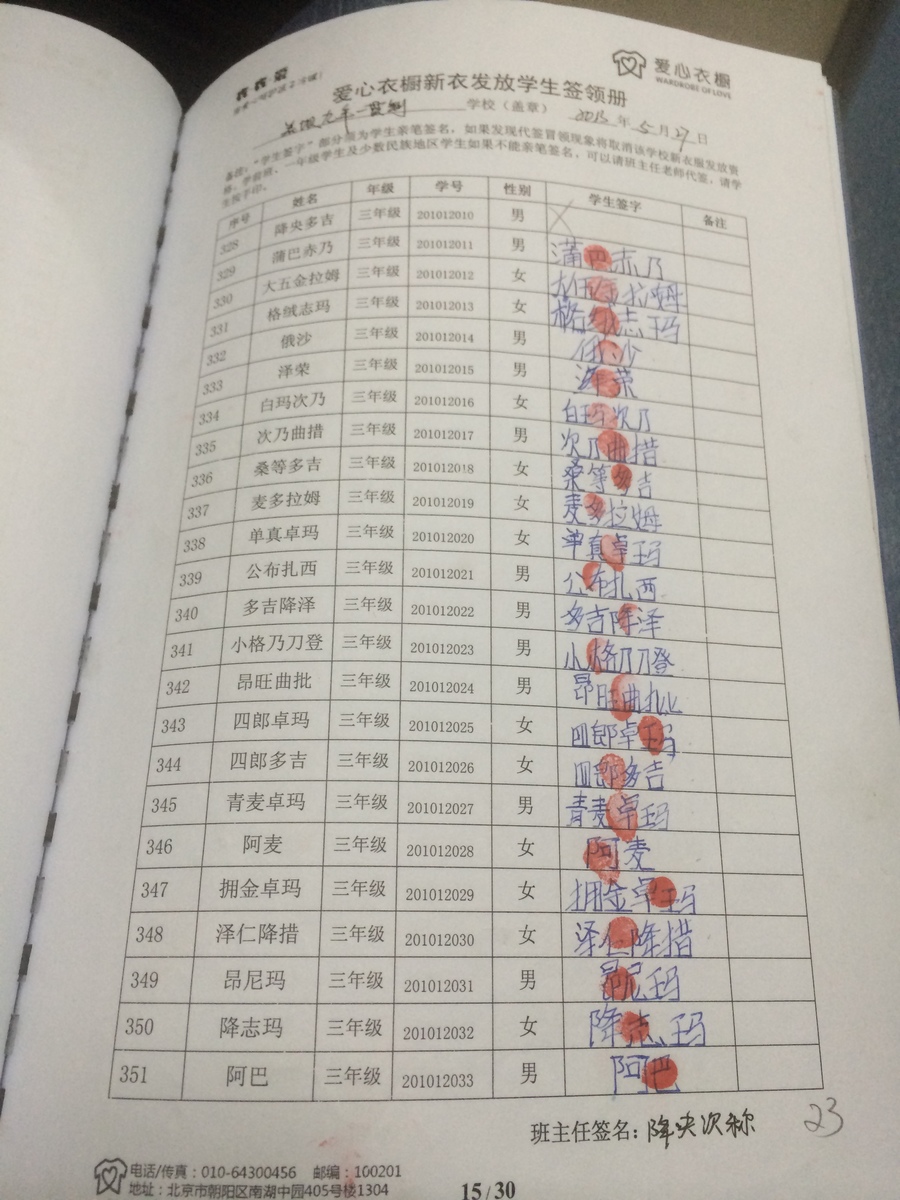 爱心衣橱
WARDROBE OF LOVE
爱心衣橱新衣发放学生签领册
九年一贯制 学校（盖章） 2013 年 5 月 27 日
备注："学生签字"部分须为学生亲笔签名，如果发现代签冒领现象将取消该学校新衣服发放资
格。学前班、一年级学生及少数民族地区学生如果不能亲笔签名，可以请班主任老师代签，请学
生按手印。
序号 姓名 年级 学号 性别 学生签字 备注
328 降央多吉 三年级 201012010 男
329 蒲巴赤乃 三年级 201012011 男 蒲巴赤乃
330 大五金拉姆 三年级 201012012 女 大五金拉姆
331 格绒志玛 三年级 201012013 女 格绒志玛
332 俄沙 三年级 201012014 男 俄沙
333 泽荣 三年级 201012015 男 泽荣
334 白玛次乃 三年级 201012016 女 白玛次乃
335 次乃曲措 三年级 201012017 男 次乃曲措
336 桑等多吉 三年级 201012018 女 桑等多吉
337 麦多拉姆 三年级 201012019 女 麦多拉姆
338 单真卓玛 三年级 201012020 女 单真卓玛
339 公布扎西 三年级 201012021 男 公布扎西
340 多吉降泽 三年级 201012022 男 多吉降泽
341 小格乃刀登 三年级 201012023 男 小格乃刀登
342 昂旺曲批 三年级 201012024 男 昂旺曲批
343 四郎卓玛 三年级 201012025 女 四郎卓玛
344 四郎多吉 三年级 201012026 女 四郎多吉
345 青麦卓玛 三年级 201012027 男 青麦卓玛
346 阿麦 三年级 201012028 女 阿麦
347 拥金卓玛 三年级 201012029 女 拥金卓玛
348 泽仁降措 三年级 201012030 女 泽仁降措
349 昂尼玛 三年级 201012031 男 昂尼玛
350 降志玛 三年级 201012032 女 降志玛
351 阿巴 三年级 201012033 男 阿巴
班主任签名：降央次称 23
电话/传真：010-64300456 邮编：100201
地址：北京市朝阳区南湖中园405号楼1304
15/30